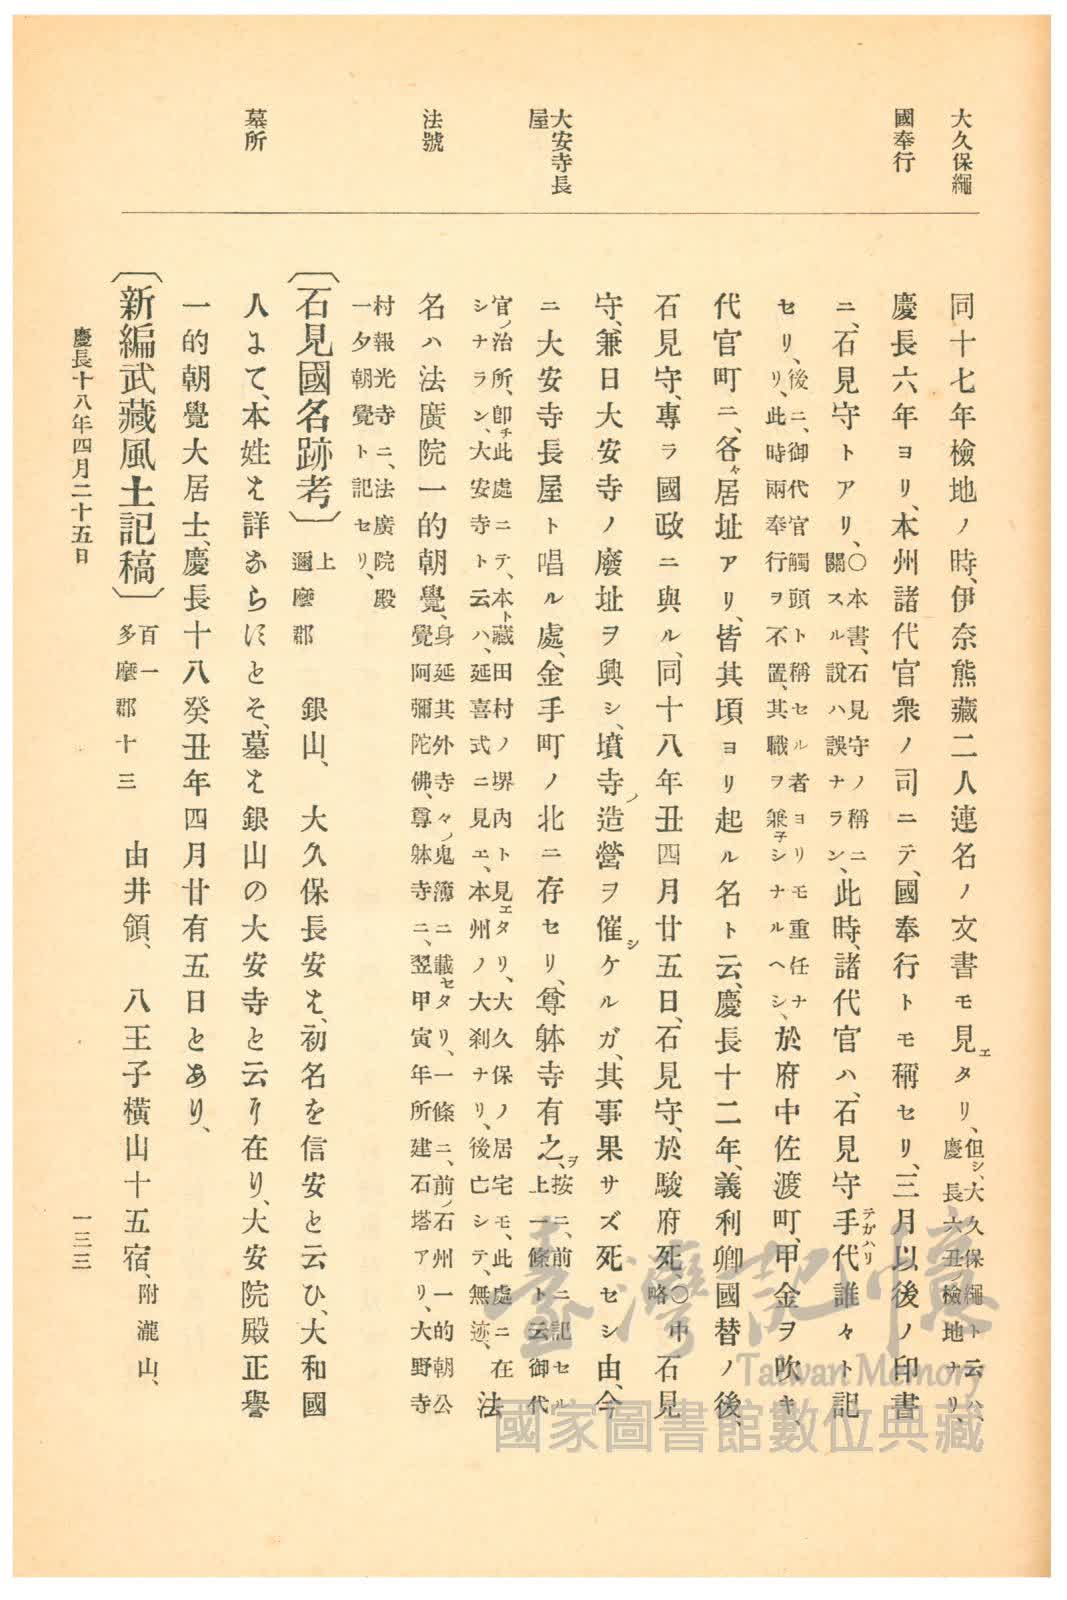 大久保繩
國奉行
大安寺長
屋
法號
墓所
同十七年檢地ノ時、伊奈熊藏二人連名ノ文書モ見エタリ、但シ、大久保繩ト云ハ、
慶長六丑ノ檢地ナリ、
慶長六年ヨリ、本州諸代官衆ノ司ニテ、國奉行トモ稱セリ、三月以後ノ印書
ニ、石見守トアリ、〇本書、石見守ノ稱ニ
關スル說ハ誤ナラン、此時、諸代官ハ、石見守手代誰々ト記
テガハリ
セリ、後ニ、御代官觸頭ト稱セル者ヨリモ重任ナ
リ、此時兩奉行ヲ不置、其職ヲ兼子シナルヘシ、於府中佐渡町、甲金ヲ吹キ、
代官町ニ、各々居址アリ、皆其頃ヨリ起ル名ト云、慶長十二年、義利卿國替ノ後、
石見守、專ラ國政ニ與ル、同十八年丑四月廿五日、石見守、於駿府死、〇中
略石見
守、兼日大安寺ノ廢址ヲ興シ、墳寺ノ造營ヲ催シケルガ、其事果サズ死セシ由、今
ニ大安寺長屋ト唱ル處、金手町ノ北ニ存セリ、尊躰寺有之、ヲ按ニ、前ニ記セル
上一條ト云御代
官ノ治所、卽チ此處ニテ、本ト藏田村ノ堺內ト見エタリ、大久保ノ居宅モ、此處ニ在
シナラン、大安寺ト云ハ、延喜式ニ見エ、本州ノ大刹ナリ、後亡シテ、無迹、法
名ハ法廣院一的朝覺、身延其外寺々ノ鬼簿ニ載セタリ、一條ニ、前ノ石州一的朝公
覺阿彌陀佛、尊躰寺ニ、翌甲寅年所建石塔アリ、大野寺
村報光寺ニ、法廣院殿
一夕朝覺ト記セリ、
〔石見國名跡考〕上
邇摩郡 銀山、 大久保長安は、初名を信安と云ひ、大和國
人にて、本姓は詳ならにとそ、墓は銀山の大安寺と云々在り、大安院殿正譽
一的朝覺大居士、慶長十八癸丑年四月廿有五日とあり、
〔新編武藏風土記稿〕百一
多摩郡十三 由井領、 八王子橫山十五宿、附瀧山、
慶長十八年四月二十五日
一三三
臺灣記憶
Taiwan Memory
國家圖書館數位典藏